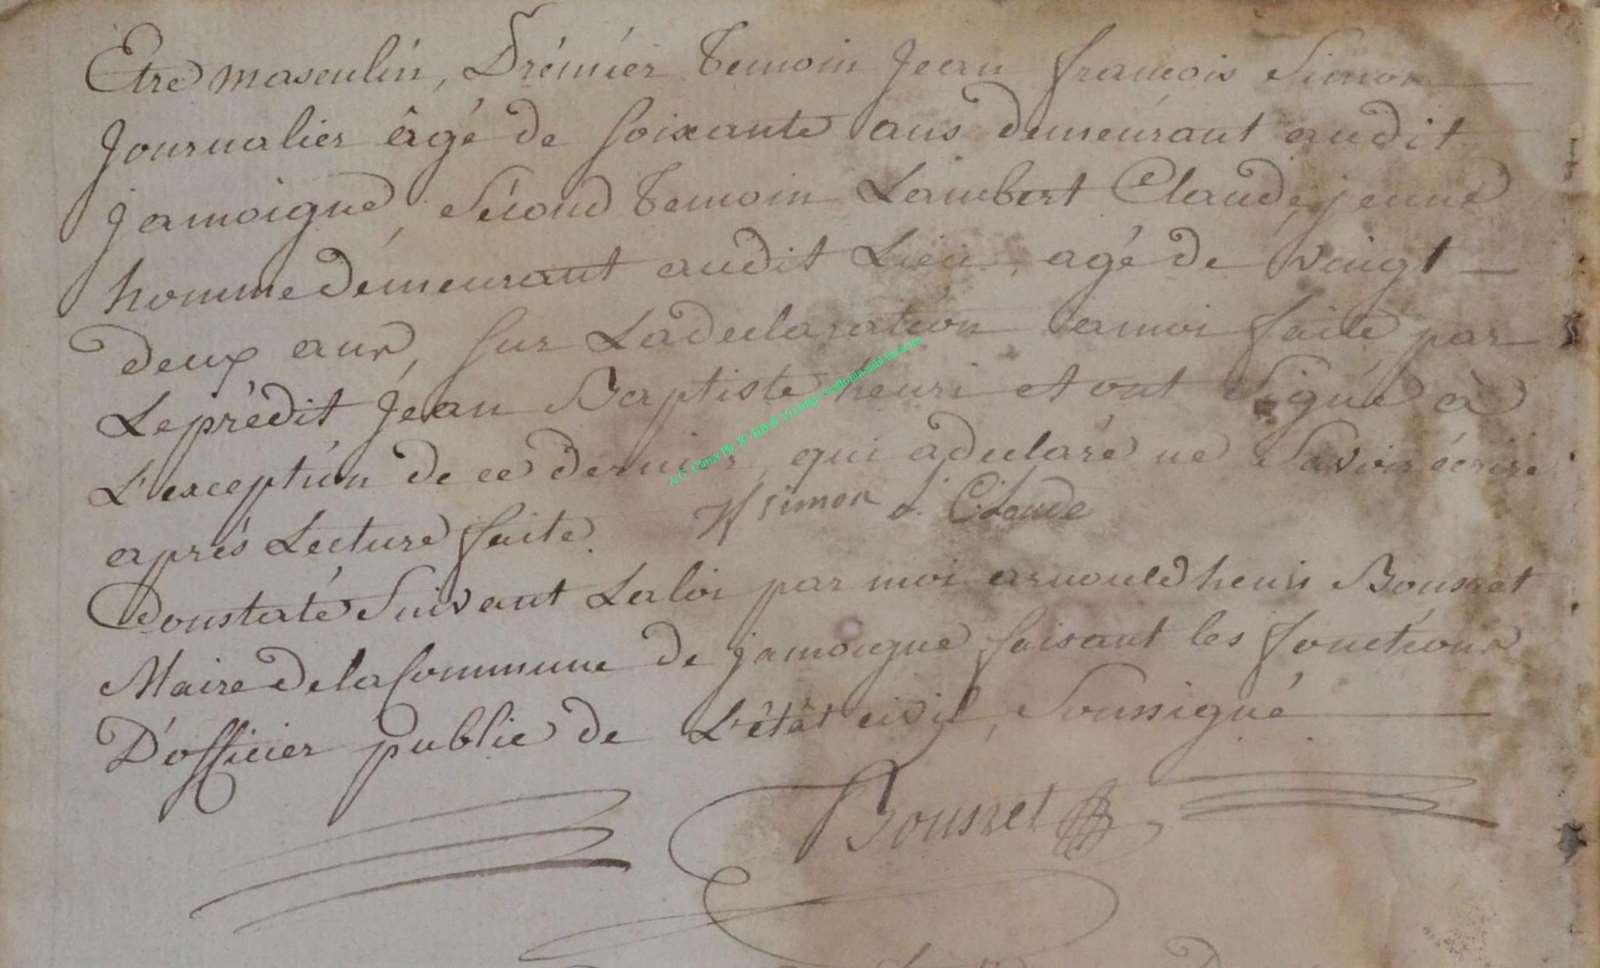 Etre masculin, Prémiér Temoin Jean francois Simon
Journaliér âgé de soixante ans demeurant audit
jamoigne, Sécond Temoin Lambert Claude, jeune
homme démeurant audit Lieu, agé de vingt
deux ans, sur Ladeclaration amoi faite par
Leprédit Jéan Baptiste henri et ont signé a
L'exception de ce dernier, qui adeclaré ne Savoir écrire
aprés Lecture faite. simon L. Claude
Constaté Suivant Laloi par moi arnould henri Bousret
Maire delacommune de jamoigne faisant les fonctions
D'officier public de L'êtât civil, Soussigné
Bousret